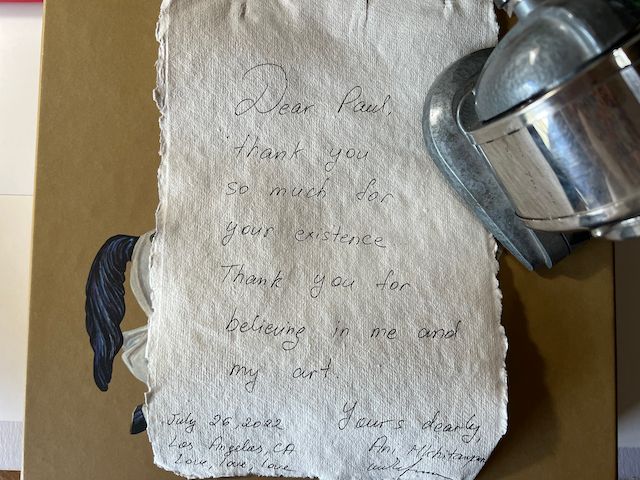 Dear Paul,
thank you
so much for
your existence
Thank you for
believing in me and
my art.
Yours dearly,
Ani
July 26, 2022
Los Angeles, CA
Love, love, love